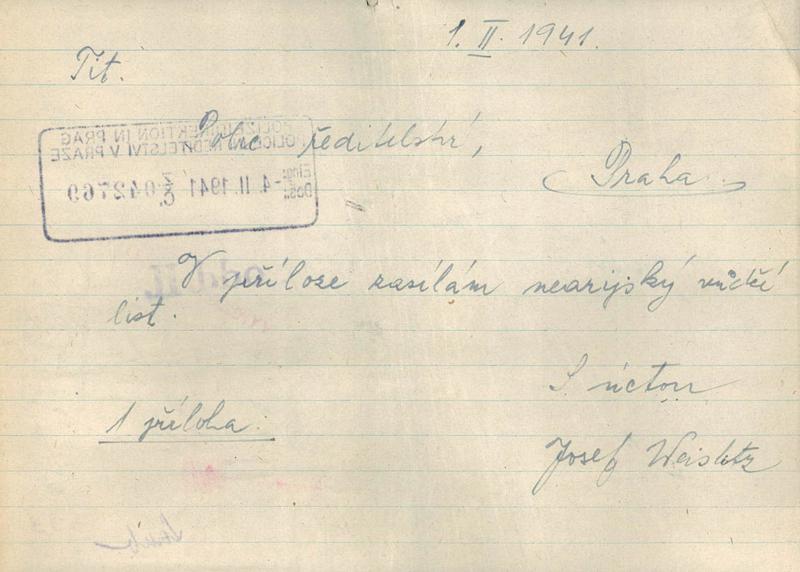 1. II. 1941.
Tit.
Polic ředitelství,
Praha
POLIZEIDIREKTION IN PRAG
POLICEJNÍ ŘEDITELSTVÍ V PRAZE
Eing.: Došlo: -4. II. 1941 Z. Č. 042760
V příloze zasílám nearijský vůdčí
list.
odd. II.
S úctou
1 příloha.
Josef Weislitz